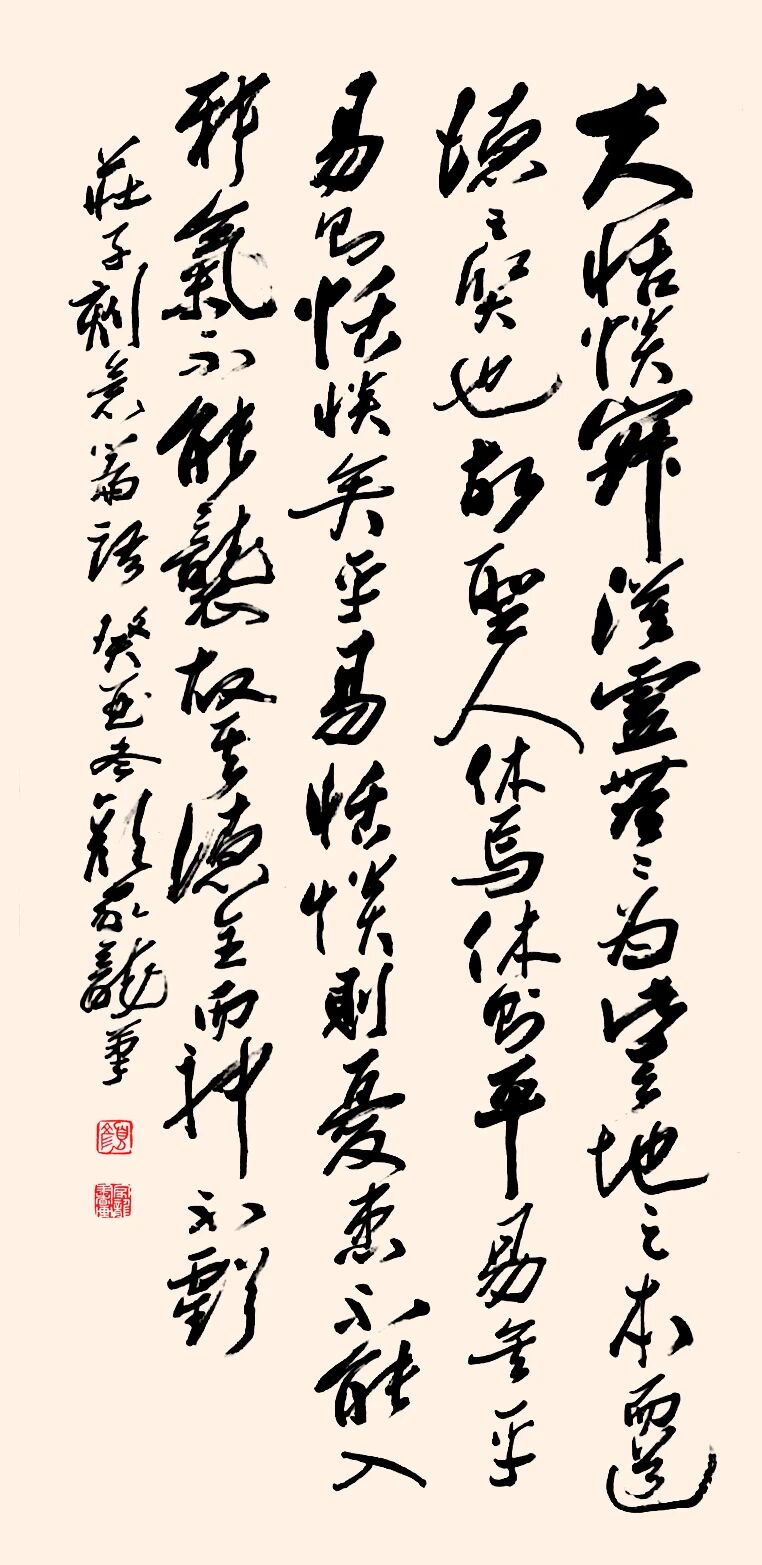 夫恬惔寂漠虛無〻為此天地之本而道
德之質也故聖人休焉休則平易矣平
易則恬惔矣平易恬惔則憂患不能入
邪氣不能襲故其德全而神不虧
莊子刻意篇語 癸酉冬顏家龍筆
顏